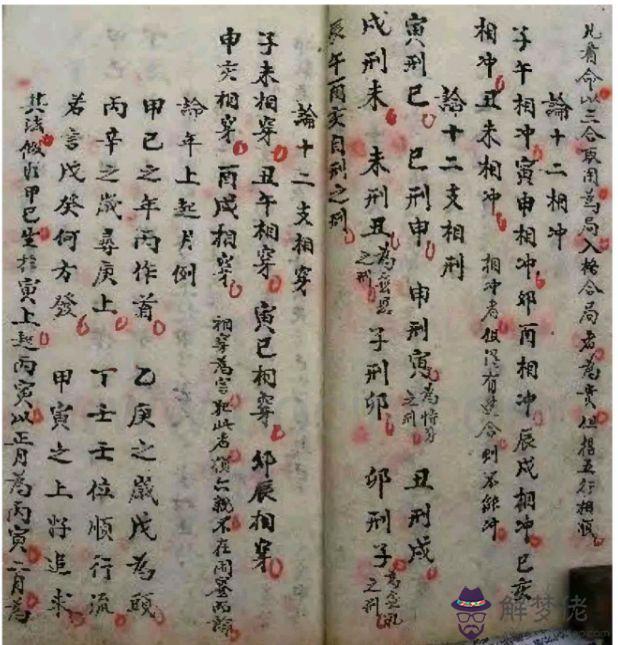 凡看命以三合取用為局入格合局者為貴但揩五行相順
論十二相冲
子午相冲寅申相冲卯酉相冲辰戌相冲巳亥
相冲丑未相冲 相冲者但有合則不能冲
論十二支相刑
寅刑巳 巳刑申 申刑寅 為恃勢之刑 丑刑戌
戌刑未 未刑丑 為之刑 子刑卯 卯刑子 為無礼之刑
辰午酉亥自刑之刑
論十二支相穿
子未相穿丑午相穿寅巳相穿卯辰相穿
申亥相穿酉戌相穿 相穿為害犯此者六親不在
論年上起月例
甲己之年丙作首 乙庚之歲戊為頭
丙辛之歲尋庚上 丁壬壬位順行流
若言戊癸何方發 甲寅之上好追求
其法假如甲己生於寅上起丙寅以正月為丙寅二月為
解梦佬